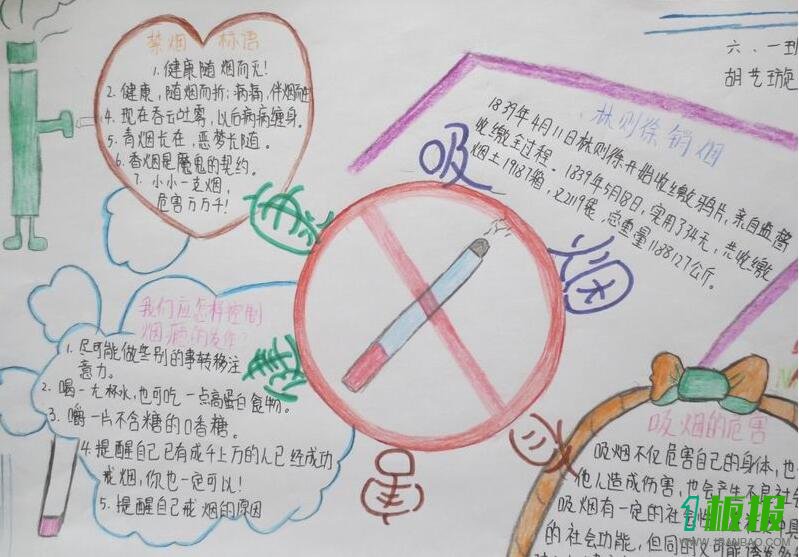 禁烟 标语
1.健康随烟而无!
2.健康,随烟而折;病痛,伴烟而
4.现在吞云吐雾,以后病病缠身。
5.青烟长在,恶梦长随。
6.香烟是魔鬼的契约。
7.小小一支烟,
危害万万千!
六、一班
胡艺璇
林则徐销烟
1839年4月11日林则徐开始收缴鸦片,亲自监督
收缴全过程。1839年5月18日,实用了34天,共收缴
烟土19187箱,又2119袋,总重量1188127公斤。
吸
烟
我们应怎样控制
烟瘾的发作?
1.尽可能做些别的事转移注
意力。
2.喝一大杯水,也可吃一点高蛋白食物。
3.嚼一片不含糖的口香糖。
4.提醒自己已有成千上万的人已经成功
戒烟,你也一定可以!
5.提醒自己戒烟的原因
吸烟的危害
吸烟不仅危害自己的身体,也
他人造成伤害,也会产生不良社会
吸烟有一定的社会性
的社会功能,但同时又可能诱发
板报
WWW.1BANBAO.COM